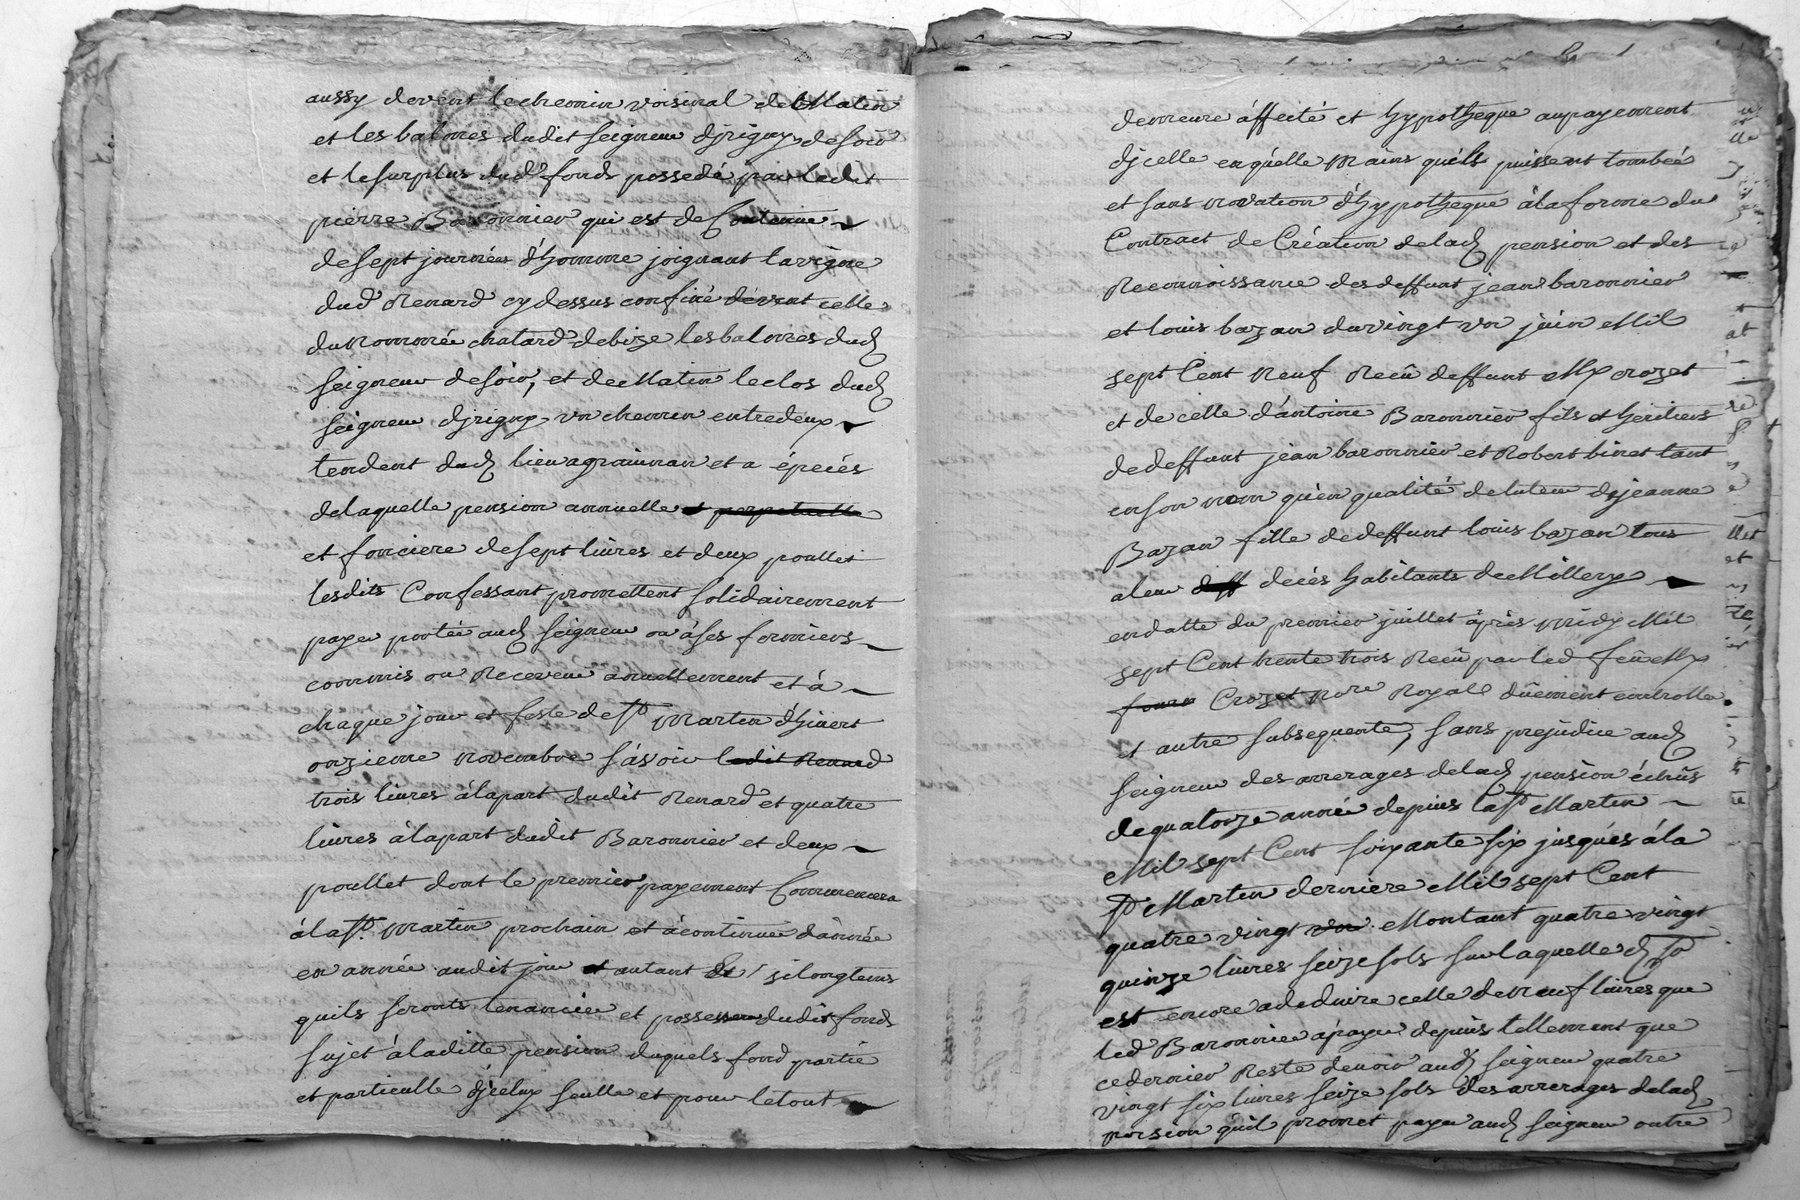 aussy devent le chemin voisinal de Matin
et les balmes dudit seigneur djrigny de soir
et le surplus dud fonds possedé par ledit
pierre Baronnier qui est de Contenue
de sept journées d'homme joignant la vigne
dud Renard cy dessus confiné devent celle
du nommée chatard de bize les balmes dud
seigneur de soir, et de Matin le clos dud
seigneur djrigny un chemin entredeux
tendent dud lieu a et a épeciés
de laquelle pension annuelle et perpetuelle
et fonciere de sept livres et deux poullet
lesdits Confessant promettent solidairement
payer portée aud seigneur ou á ses fermiers
commis ou Receveur annuellement et á
chaque jour et feste de st Martin d'hivert
onzieme novembre sávoir ledit Renard
trois livres á la part dudit Renard et quatre
livres á la part dudit Baronnier et deux
poullet dont le premier payement Commencera
á la st Martin prochain et á continuer dánnée
en année audit jour et autant si longtems
quils seronts tenancier et possesseur dudit fonds
sujet á la ditte pension duquels fond partie
et particulle djcelux seulle et pour le tout
demeure áffecté et hypotheque au payement
djcelle en quélle mains quils puissent tombée
et sans novation d'hypotheque á la forme du
Contract de Création de lad pension et des
Reconnoissance des deffunt jean baronnier
et louis bazan du vingt un juin Mil
sept Cent Neuf Recû deffunt Me crozet
et de celle d'antoine Baronnier fils et heritiers
de deffunt jean baronnier et Robert binet tant
en son nom qu'en qualité de tuteur de jeanne
Bazan fille de deffunt louis bazan tous
a leur deff decés habitants de Millery
en datte du premier juillet áprés midy Mil
sept Cent trente trois Recû par led feû Me
Crozet nore Royal dûement controlle
et autre subsequente, sans prejudice aud
seigneur des arrerages de lad pension échûs
de quatorze année depuis la st Martin
Mil sept Cent soixante six jusqués á la
st Martin derniere Mil sept Cent
quatre vingt un Montant quatre vingt
quinze livres seize sols sur laquelle d
est encore a deduire celle de neuf livres que
led Baronnier á payer depuis tellement que
ce dernier Reste devoir aud seigneur quatre
vingt six livres seize sols des arrerages de lad
pension quil promet payer aud seigneur outre